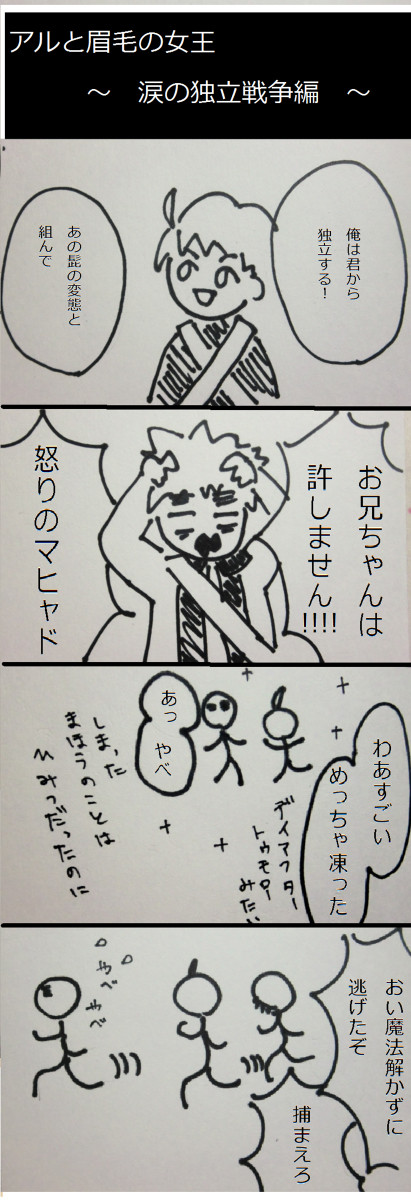 アルと眉毛の女王
～　涙の独立戦争編　～
俺は君から
独立する！
あの髭の変態と
組んで
お兄ちゃんは
許しません!!!!
怒りのマヒャド
わあすごい
めっちゃ凍った
デイアフター
トゥモロー
みたい
あっ　やべ
しまった
まほうのことは
ひみつだったのに
おい魔法解かずに
逃げたぞ
捕まえろ
やべ
やべ